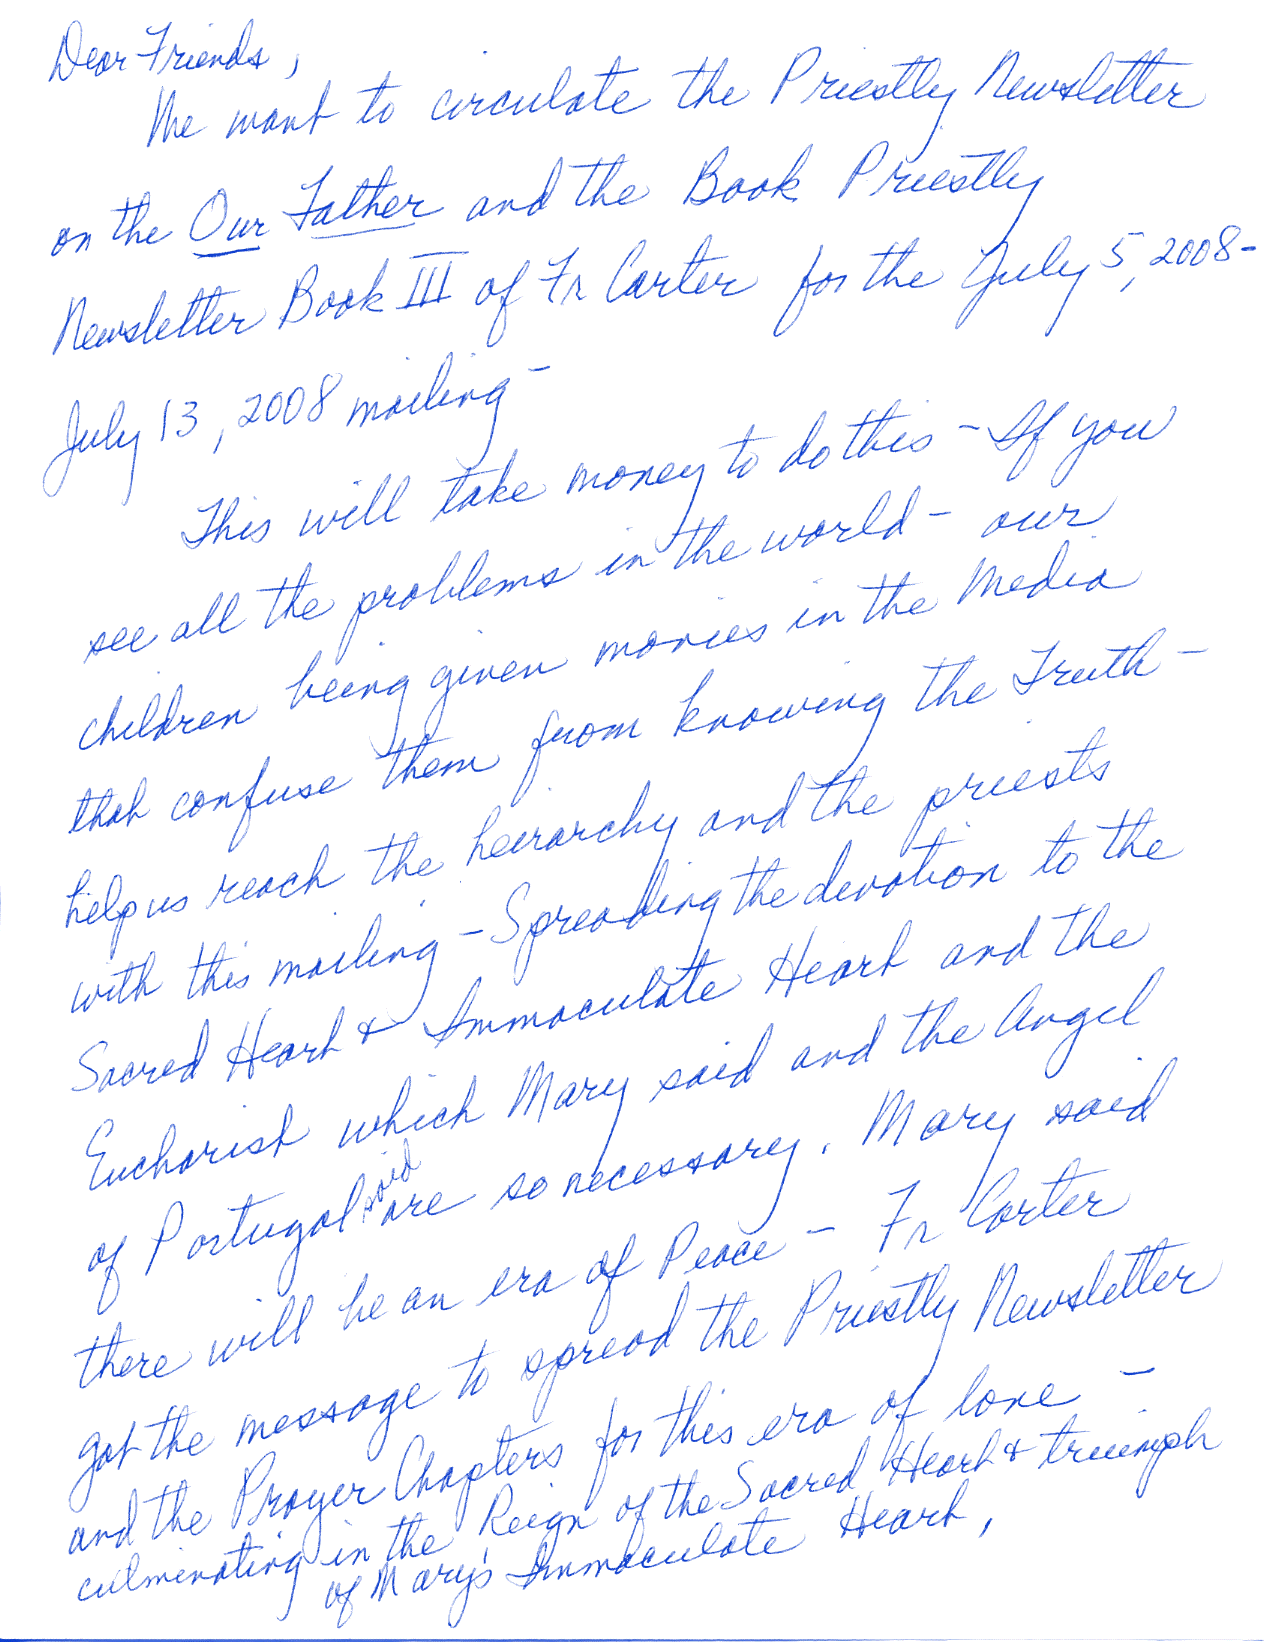 Dear Friends,
We want to circulate the Priestly Newsletter
on the Our Father and the Book Priestly
Newsletter Book III of Fr Carter for the July 5, 2008-
July 13, 2008 mailing -
This will take money to do this - If you
see all the problems in the world - our
children being given movies in the Media
that confuse them from knowing the Truth -
help us reach the heirarchy and the priests
with this mailing - Spreading the devotion to the
Sacred Heart & Immaculate Heart and the
Eucharist which Mary said and the Angel
of Portugal said are so necessary. Mary said
there will be an era of Peace - Fr Carter
got the message to spread the Priestly Newsletter
and the Prayer Chapters for this era of love -
culminating in the Reign of the Sacred Heart & triumph
of Mary's Immaculate Heart,